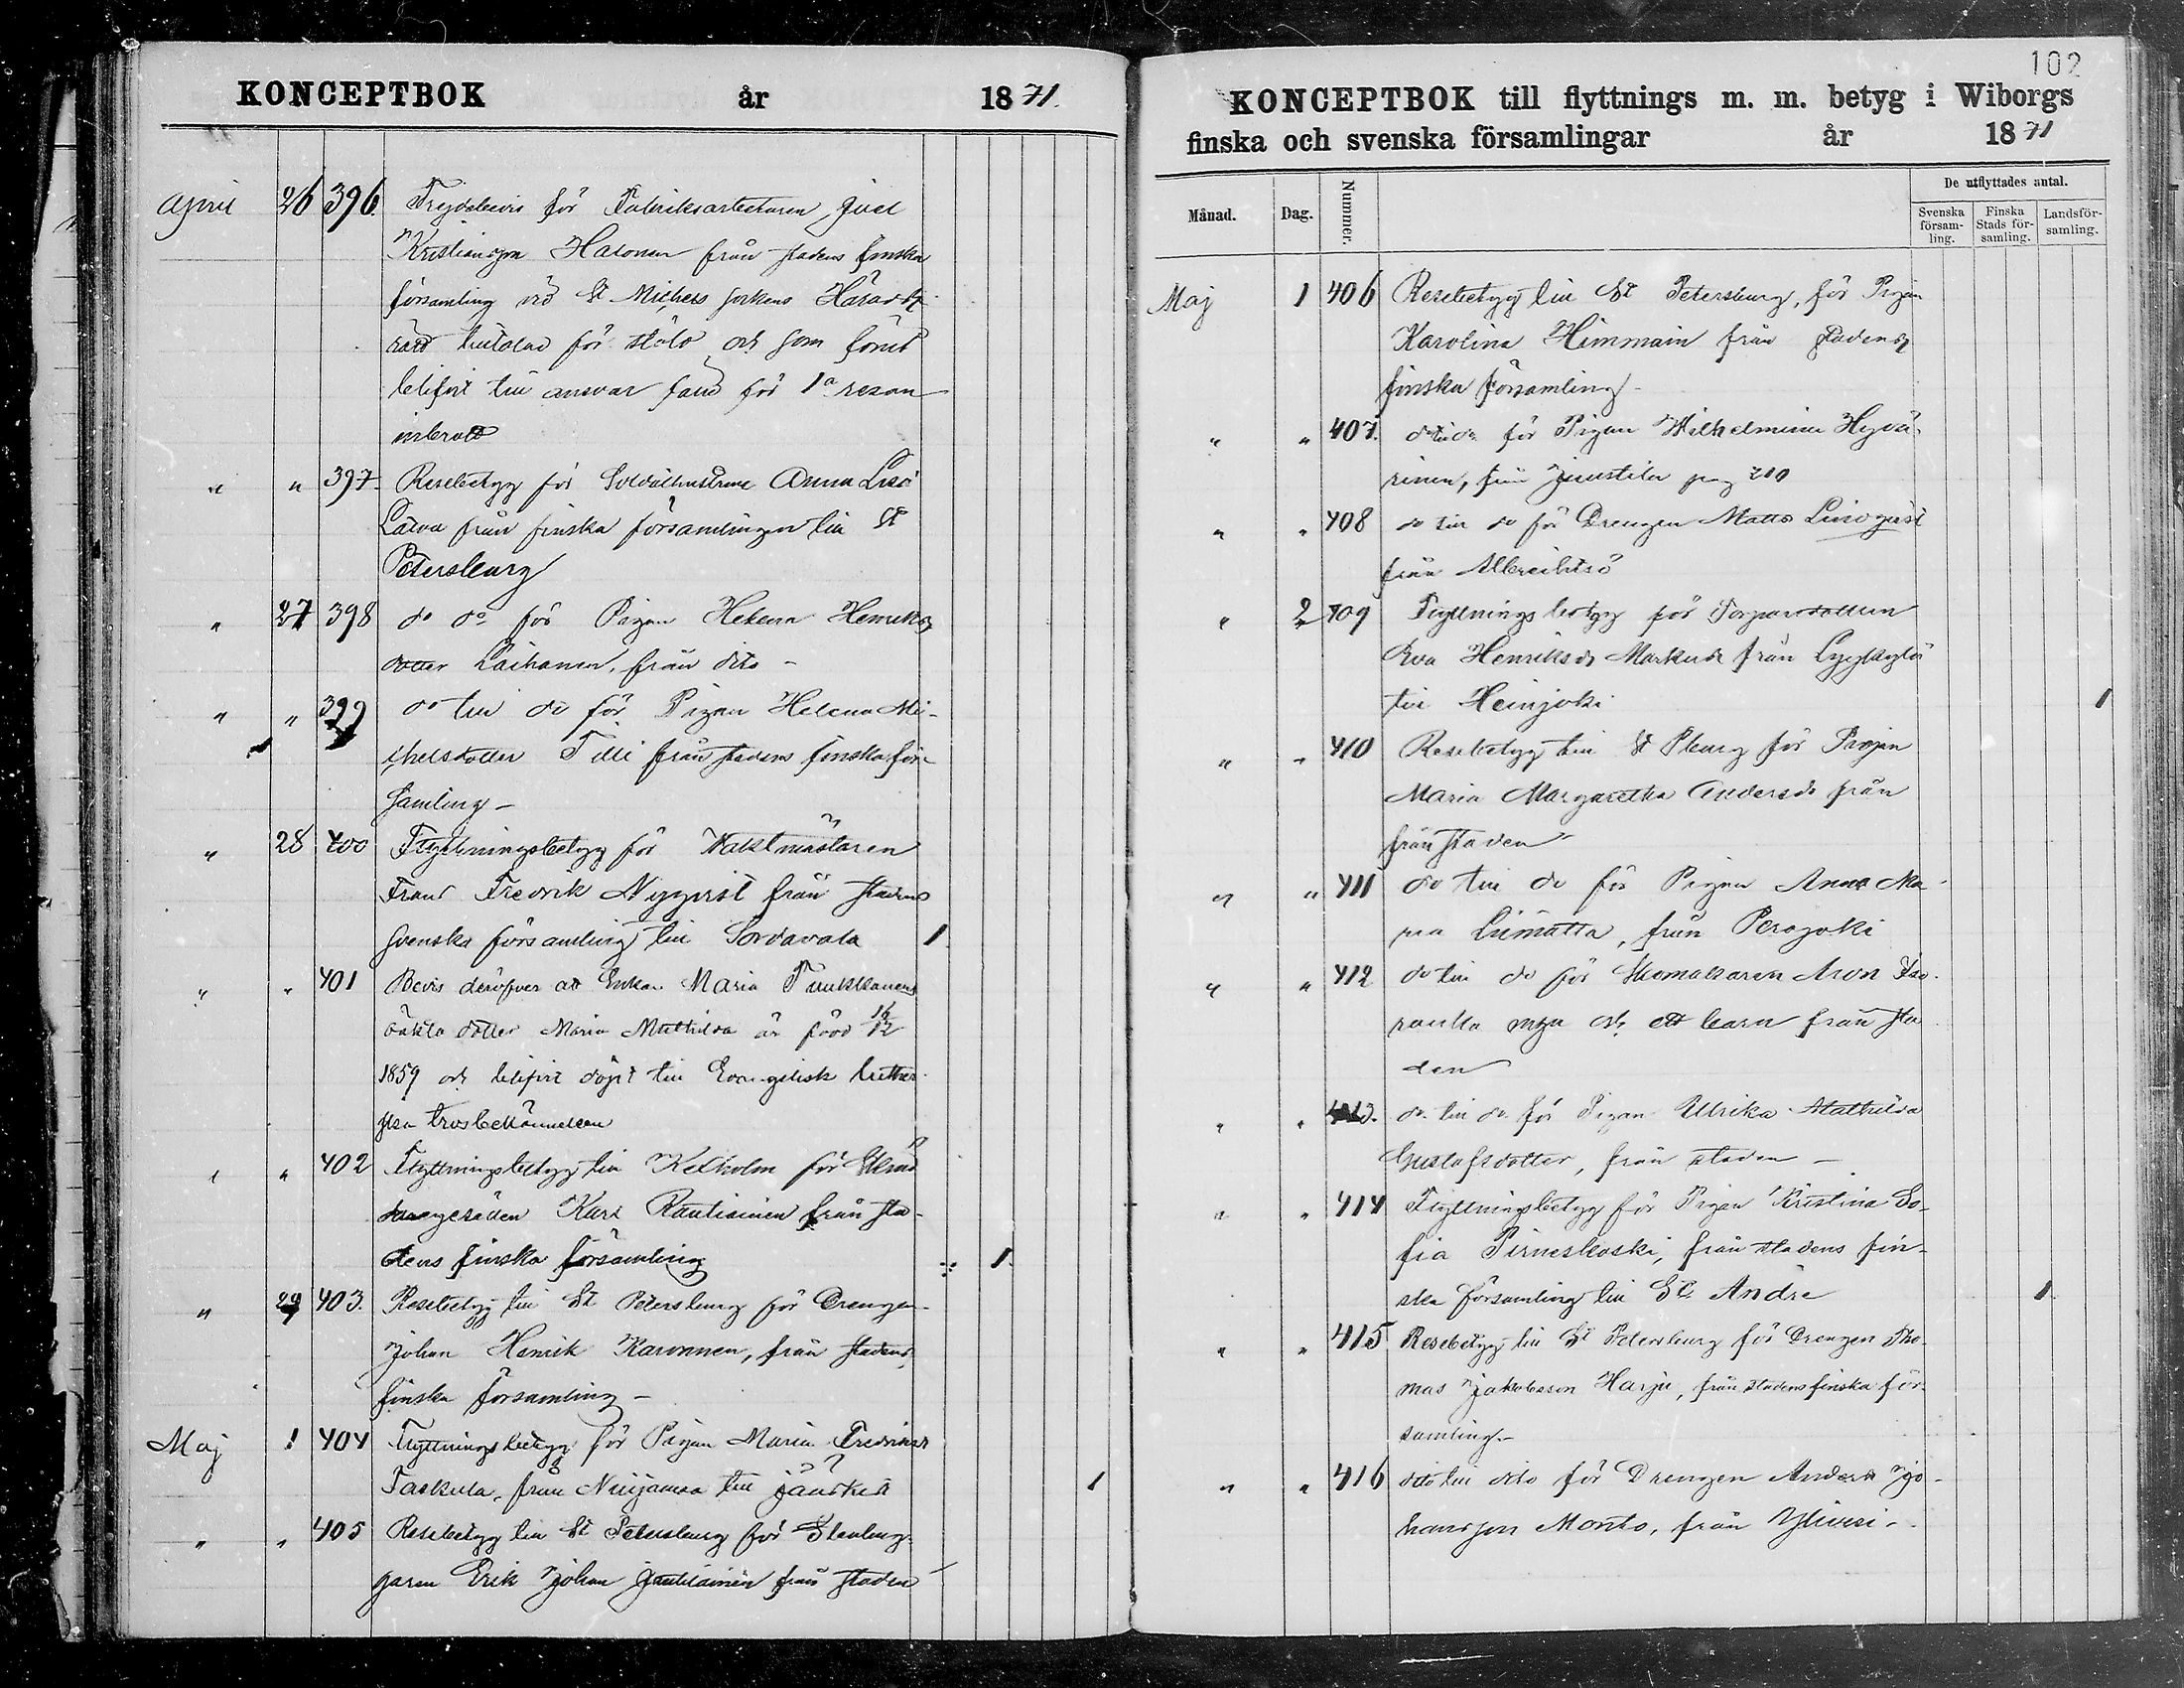 KONCEPTBOK år 1871.
April 26 396. Frejdebevis för Fabriksarbetaren Joel
Kristiansson Halonen från stadens finska
församling vid St Michels sockens Häradts
rätt tilltalad för stöld och som förut
blifvit till ansvar fäld för 1a resan
inbrott
" " 397. Resebetyg för Soldathustrun Anna Lisa
Latva från finska församlingen till St
Petersburg
" 27 398 do do för Pigan Helena Henriks
dotter Laihanen, från dito -
" " 399 do till do för Pigan Helena Mi-
chelsdotter Tilli från stadens finska för-
samling -
" 28 400 Flyttningsbetyg för Vaktmästaren
Frans Fredrik Nyqvist från stadens
svenska församling till Sordavala 1
" " 401 Bevis deröfver att Enkan Maria Tuukkanens
oäkta dotter Maria Mathilda är född 16/12
1859 och blifvit döpt till Evangelisk luther-
ska trosbekännelsen
" " 402 Flyttningsbetyg till Kexholm för
Karl Rautiainen från sta-
dens finska församling 1.
" 29 403. Resebetyg till St Petersburg för Drengen
Johan Henrik Karonnen, från stadens
finska församling -
Maj 1 404 Flyttningsbetyg för Pigan Maria Fredriksd
Taskula, från Nuijamaa till Jääskis 1
" " 405 Resebetyg till St Petersburg för Stenhug-
garen Erik Johan Jantiainen från staden
102
KONCEPTBOK till flyttnings m. m. betyg i Wiborgs
finska och svenska församlingar år 1871
Månad. Dag. Nummer. De utflyttades antal.
Svenska försam-ling. Finska Stads för-samling. Landsför-samling.
Maj 1 406 Resebetyg till St Petersburg, för Pigan
Karolina Himmain från stadens
finska församling -
" " 407. do till do för Pigan Wilhelmina Hyvä-
rinen, från Juustila pag 210
" " 408 do till do för Drengen Matts Lindqvist
från Albreihtsö
" 2 409 Flyttningsbetyg för Torparedottern
Eva Henriksdr Markudr från Lyykylä
till Heinjoki 1
" " 410 Resebetyg till St Pburg för Pigan
Maria Margaretha Andersdr från
från staden
" " 411 do till do för Pigan Anna Ma-
ria Liimatta, från Perojoki
" " 412 do till do för Skomakaren Aron
och ett barn från sta
den
" " 413. do till do för Pigan Ulrika Mathilda
Gustafsdotter, från staden -
" " 414 Flyttningsbetyg för Pigan Kristina So-
fia Pirneskoski, från stadens fin-
ska församling till St Andre 1
" " 415 Resebetyg till St Petersburg för Drengen Tho-
mas Jakobsson Harju, från stadens finska för-
samling. -
" " 416 dito till dito för Drengen Anders Jo-
hansson Monto, från Yliveri -